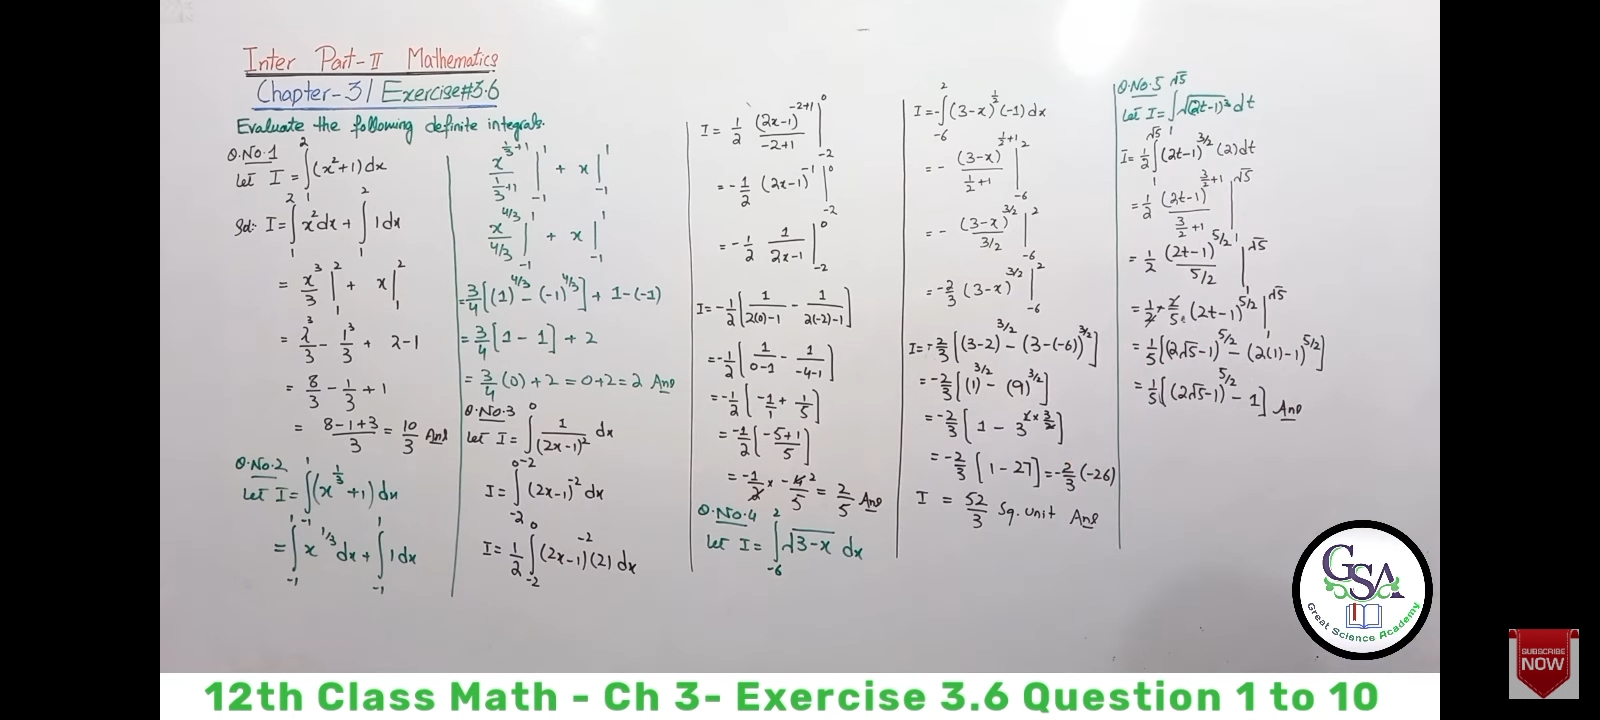 Inter Part-II Mathematics
Chapter-3/ Exercise#3.6
Evaluate the following definite integrals.
Q.No.1
Let I = ∫₁² (x²+1) dx
Sol: I = ∫₁² x² dx + ∫₁² 1 dx
= x³/3 |₁² + x |₁²
= 2³/3 - 1³/3 + 2-1
= 8/3 - 1/3 + 1
= (8-1+3)/3 = 10/3 Ans
Q.No.2
Let I = ∫₋₁¹ (x^(1/3) + 1) dx
= ∫₋₁¹ x^(1/3) dx + ∫₋₁¹ 1 dx
x^(1/3+1)/(1/3+1) |₋₁¹ + x |₋₁¹
x^(4/3)/(4/3) |₋₁¹ + x |₋₁¹
= 3/4 [(1)^(4/3) - (-1)^(4/3)] + 1-(-1)
= 3/4 [1 - 1] + 2
= 3/4 (0) + 2 = 0+2 = 2 Ans
Q.No.3
Let I = ∫₋₂⁰ 1/(2x-1)² dx
I = ∫₋₂⁰ (2x-1)⁻² dx
I = 1/2 ∫₋₂⁰ (2x-1)⁻² (2) dx
I = 1/2 (2x-1)^(-2+1)/(-2+1) |₋₂⁰
= -1/2 (2x-1)⁻¹ |₋₂⁰
= -1/2 1/(2x-1) |₋₂⁰
I = -1/2 [1/(2(0)-1) - 1/(2(-2)-1)]
= -1/2 [1/(0-1) - 1/(-4-1)]
= -1/2 [-1/1 + 1/5]
= -1/2 [(-5+1)/5]
= -1/2 × -4²/5 = 2/5 Ans
Q.No.4
Let I = ∫₋₆² √(3-x) dx
I = -∫₋₆² (3-x)^(1/2) (-1) dx
= - (3-x)^(1/2+1)/(1/2+1) |₋₆²
= - (3-x)^(3/2)/(3/2) |₋₆²
= -2/3 (3-x)^(3/2) |₋₆²
I = -2/3 [(3-2)^(3/2) - (3-(-6))^(3/2)]
= -2/3 [(1)^(3/2) - (9)^(3/2)]
= -2/3 [1 - 3^(2×3/2)]
= -2/3 [1 - 27] = -2/3 (-26)
I = 52/3 Sq.unit Ans
Q.No.5
Let I = ∫₁^√5 √(2t-1)³ dt
I = 1/2 ∫₁^√5 (2t-1)^(3/2) (2) dt
= 1/2 (2t-1)^(3/2+1)/(3/2+1) |₁^√5
= 1/2 (2t-1)^(5/2)/(5/2) |₁^√5
= 1/2 × 2/5 (2t-1)^(5/2) |₁^√5
= 1/5 [(2√5-1)^(5/2) - (2(1)-1)^(5/2)]
= 1/5 [(2√5-1)^(5/2) - 1] Ans
GSA
Great Science Academy
SUBSCRIBE
NOW
12th Class Math - Ch 3- Exercise 3.6 Question 1 to 10